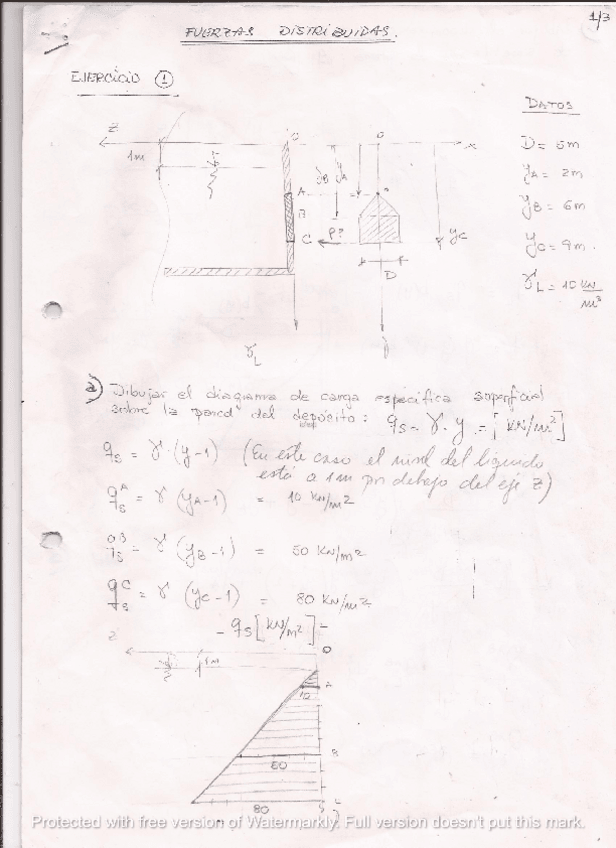 1/3
FUERZAS DISTRIBUIDAS.
EJERCICIO ①
DATOS
D = 5m
yA = 2m
yB = 6m
yC = 9m.
γL = 10 KN/m³
Z
1m
O
O
x
yB
yA
A
B
C
P?
yC
D
γL
a) Dibujar el diagrama de carga específica superficial
sobre la pared del depósito: qs = γ · y = [KN/m²]
qs = γ · (y-1) (En este caso el nivel del líquido
está a 1m por debajo del eje Z)
qsA = γ (yA-1) = 10 KN/m²
qsB = γ (yB-1) = 50 KN/m²
qsC = γ (yC-1) = 80 KN/m²
- qs [KN/m²] -
Z
1m
O
A
10
B
50
80
Protected with free version of Watermarkly. Full version doesn't put this mark.